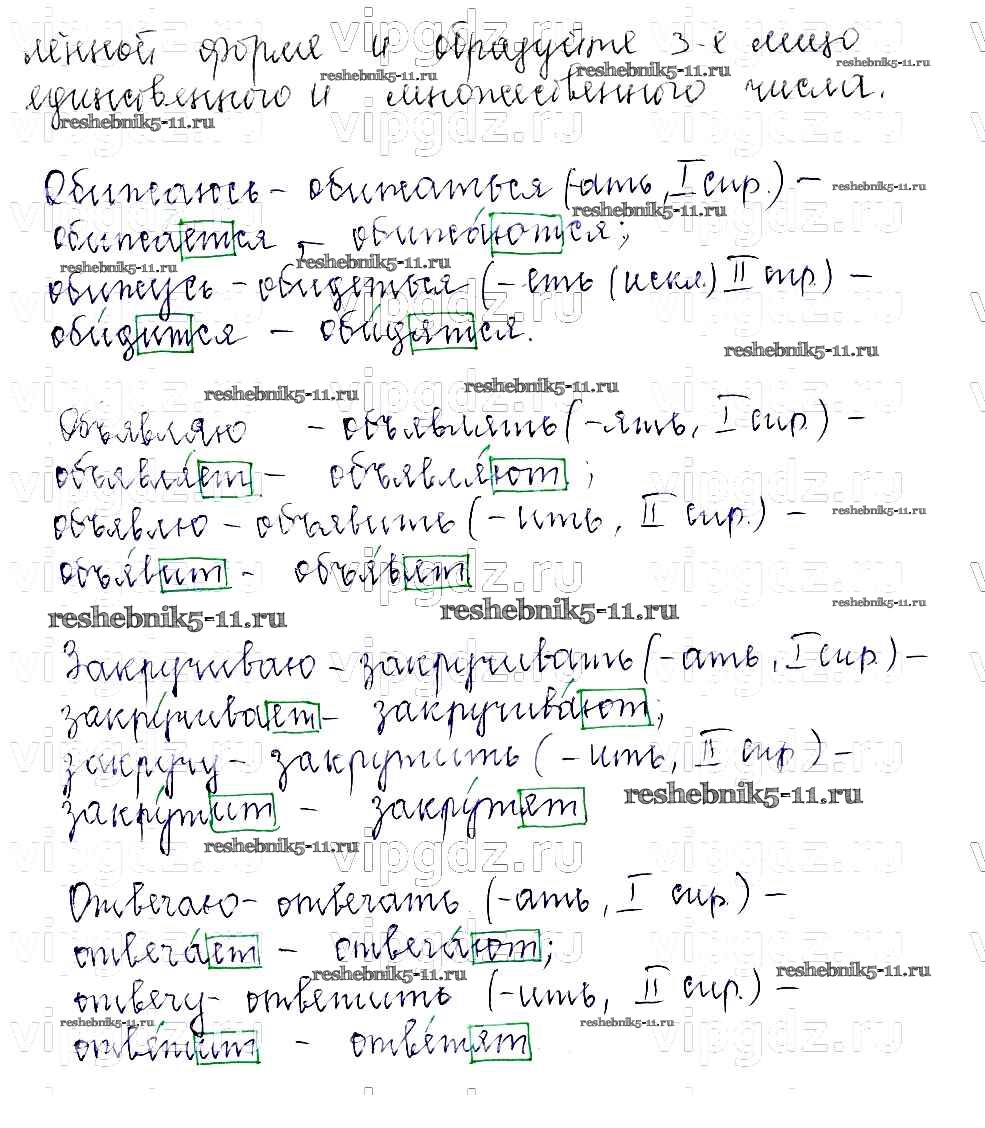 лённой форме и образуйте 3-е лицо
единственного и множественного числа.
Обижаюсь - обижаться (-ать, I спр.) -
обижается - обижа́ются;
обижусь - обидеться (-еть (искл.) II спр.) -
оби́дится - оби́дятся.
Объявляю - объявлять (-ять, I спр.) -
объявля́ет - объявля́ют;
объявлю - объявить (-ить, II спр.) -
объя́вит - объя́вят
Закручиваю - закручивать (-ать, I спр.) -
закру́чивает - закручива́ют;
закручу - закрутить (-ить, II спр.) -
закру́тит - закру́тят
Отвечаю - отвечать (-ать, I спр.) -
отвеча́ет - отвеча́ют;
отвечу - ответить (-ить, II спр.) -
отве́тит - отве́тят
vipgdz.ru
reshebnik5-11.ru